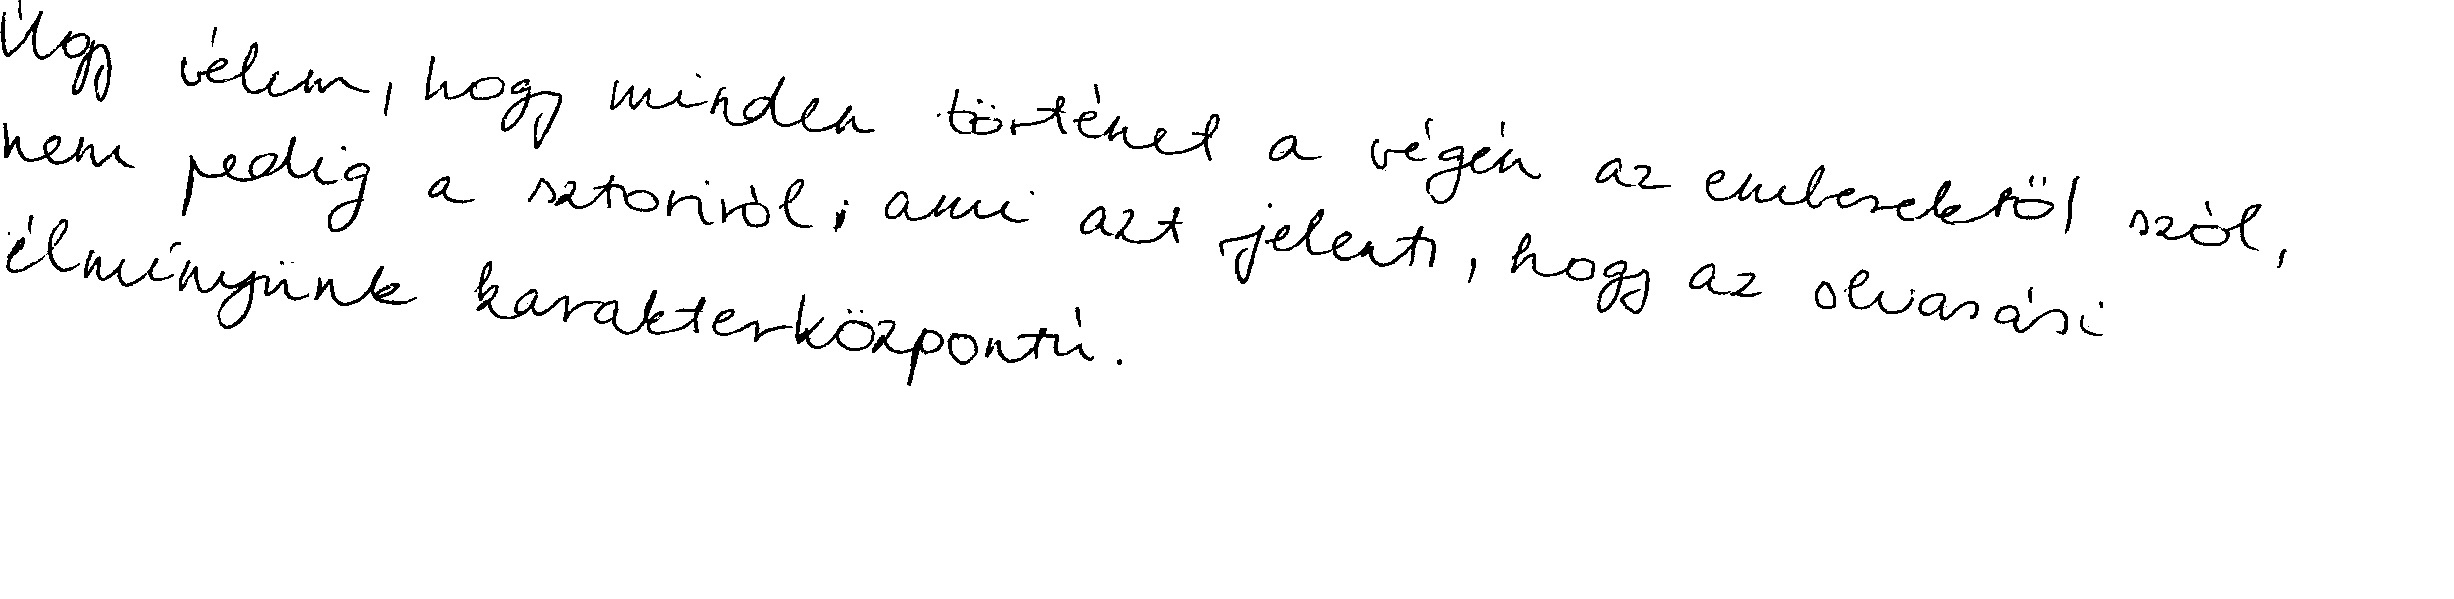 Úgy vélem, hogy minden történet a végén az emberektől szól,
nem pedig a sztoriról, ami azt jelenti, hogy az olvasási
élményünk karakterközpontú.